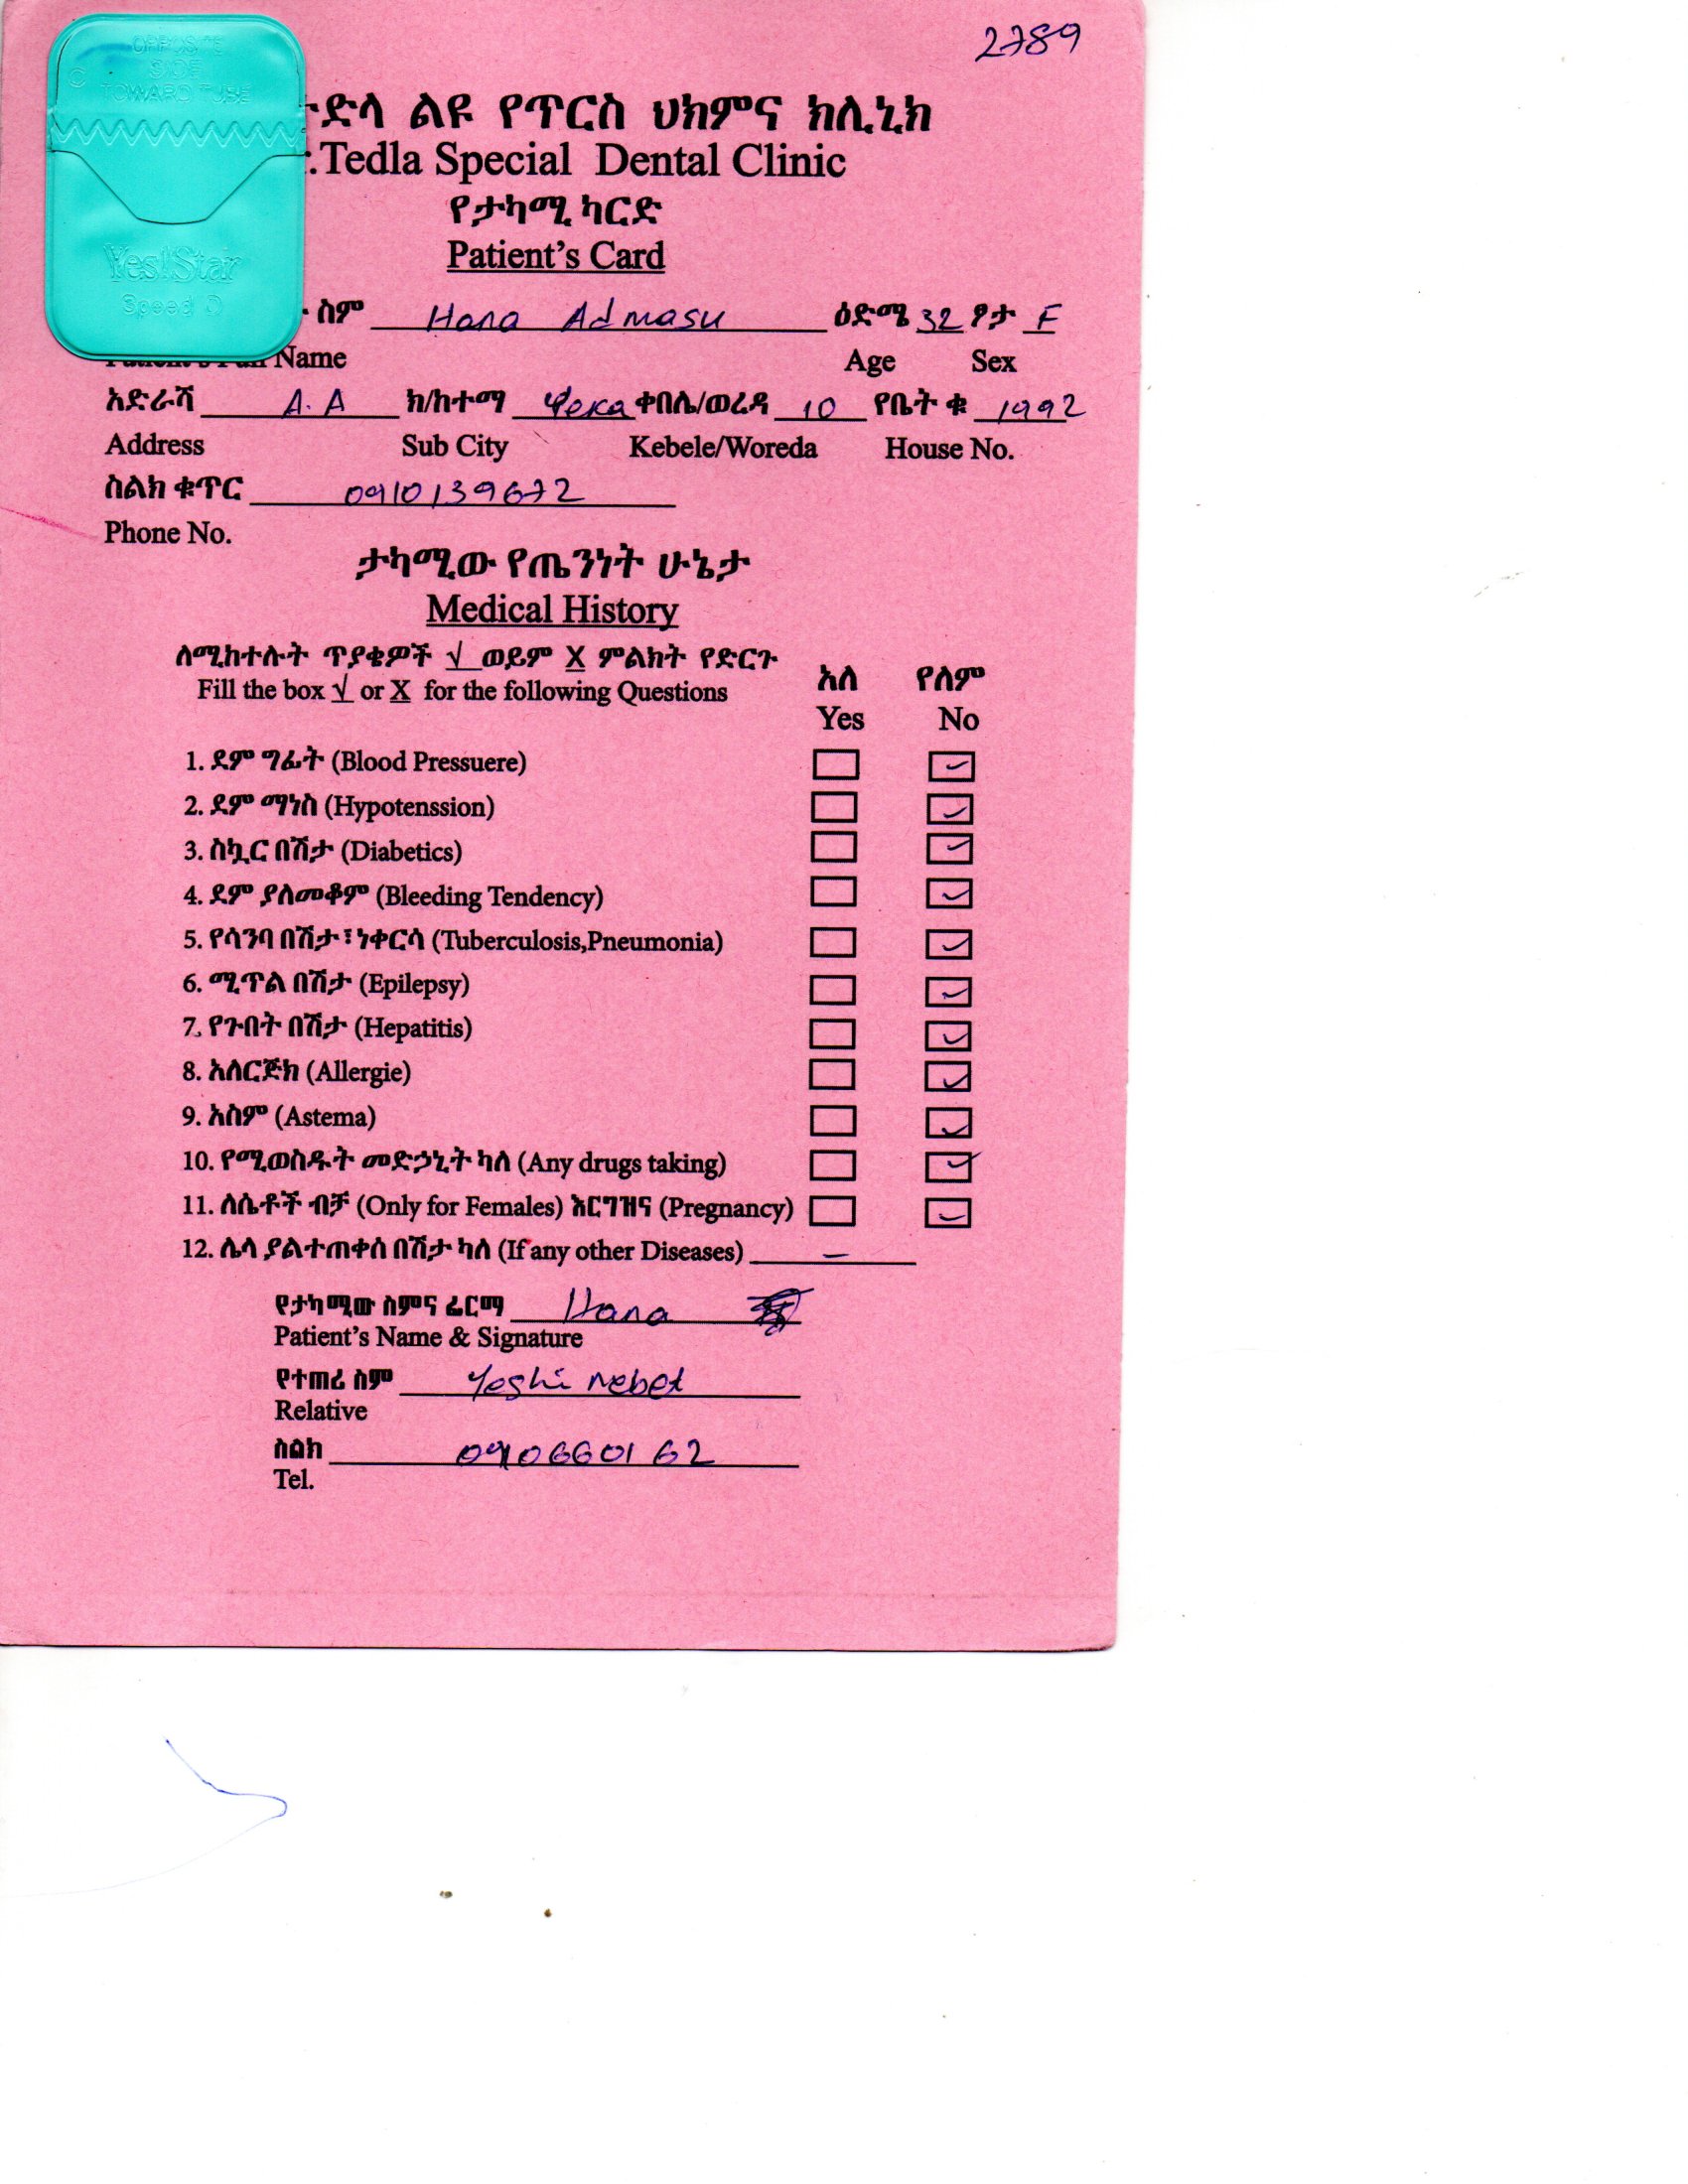 2789
OPPOSITE
SIDE
TOWARD TUBE
Yes!Star
Speed D
ልዩ የጥርስ ህክምና ክሊኒክ
.Tedla Special Dental Clinic
የታካሚ ካርድ
Patient's Card
ስም Hana Admasu ዕድሜ 32 ፆታ F
Name Age Sex
አድራሻ A.A ክ/ከተማ Yeka ቀበሌ/ወረዳ 10 የቤት ቁ 1992
Address Sub City Kebele/Woreda House No.
ስልክ ቁጥር 0910139672
Phone No.
ታካሚው የጤንነት ሁኔታ
Medical History
ለሚከተሉት ጥያቄዎች √ ወይም X ምልክት የድርጉ አለ የለም
Fill the box √ or X for the following Questions Yes No
1. ደም ግፊት (Blood Pressuere) ✓
2. ደም ማነስ (Hypotenssion) ✓
3. ስኳር በሽታ (Diabetics) ✓
4. ደም ያለመቆም (Bleeding Tendency) ✓
5. የሳንባ በሽታ፣ነቀርሳ (Tuberculosis,Pneumonia) ✓
6. ሚጥል በሽታ (Epilepsy) ✓
7. የጉበት በሽታ (Hepatitis) ✓
8. አለርጅክ (Allergie) ✓
9. አስም (Astema) ✓
10. የሚወስዱት መድኃኒት ካለ (Any drugs taking) ✓
11. ለሴቶች ብቻ (Only for Females) እርግዝና (Pregnancy) ✓
12. ሌላ ያልተጠቀሰ በሽታ ካለ (If any other Diseases) –
የታካሚው ስምና ፊርማ Hana
Patient's Name & Signature
የተጠሪ ስም Yeshi nebet
Relative
ስልክ 0910660162
Tel.